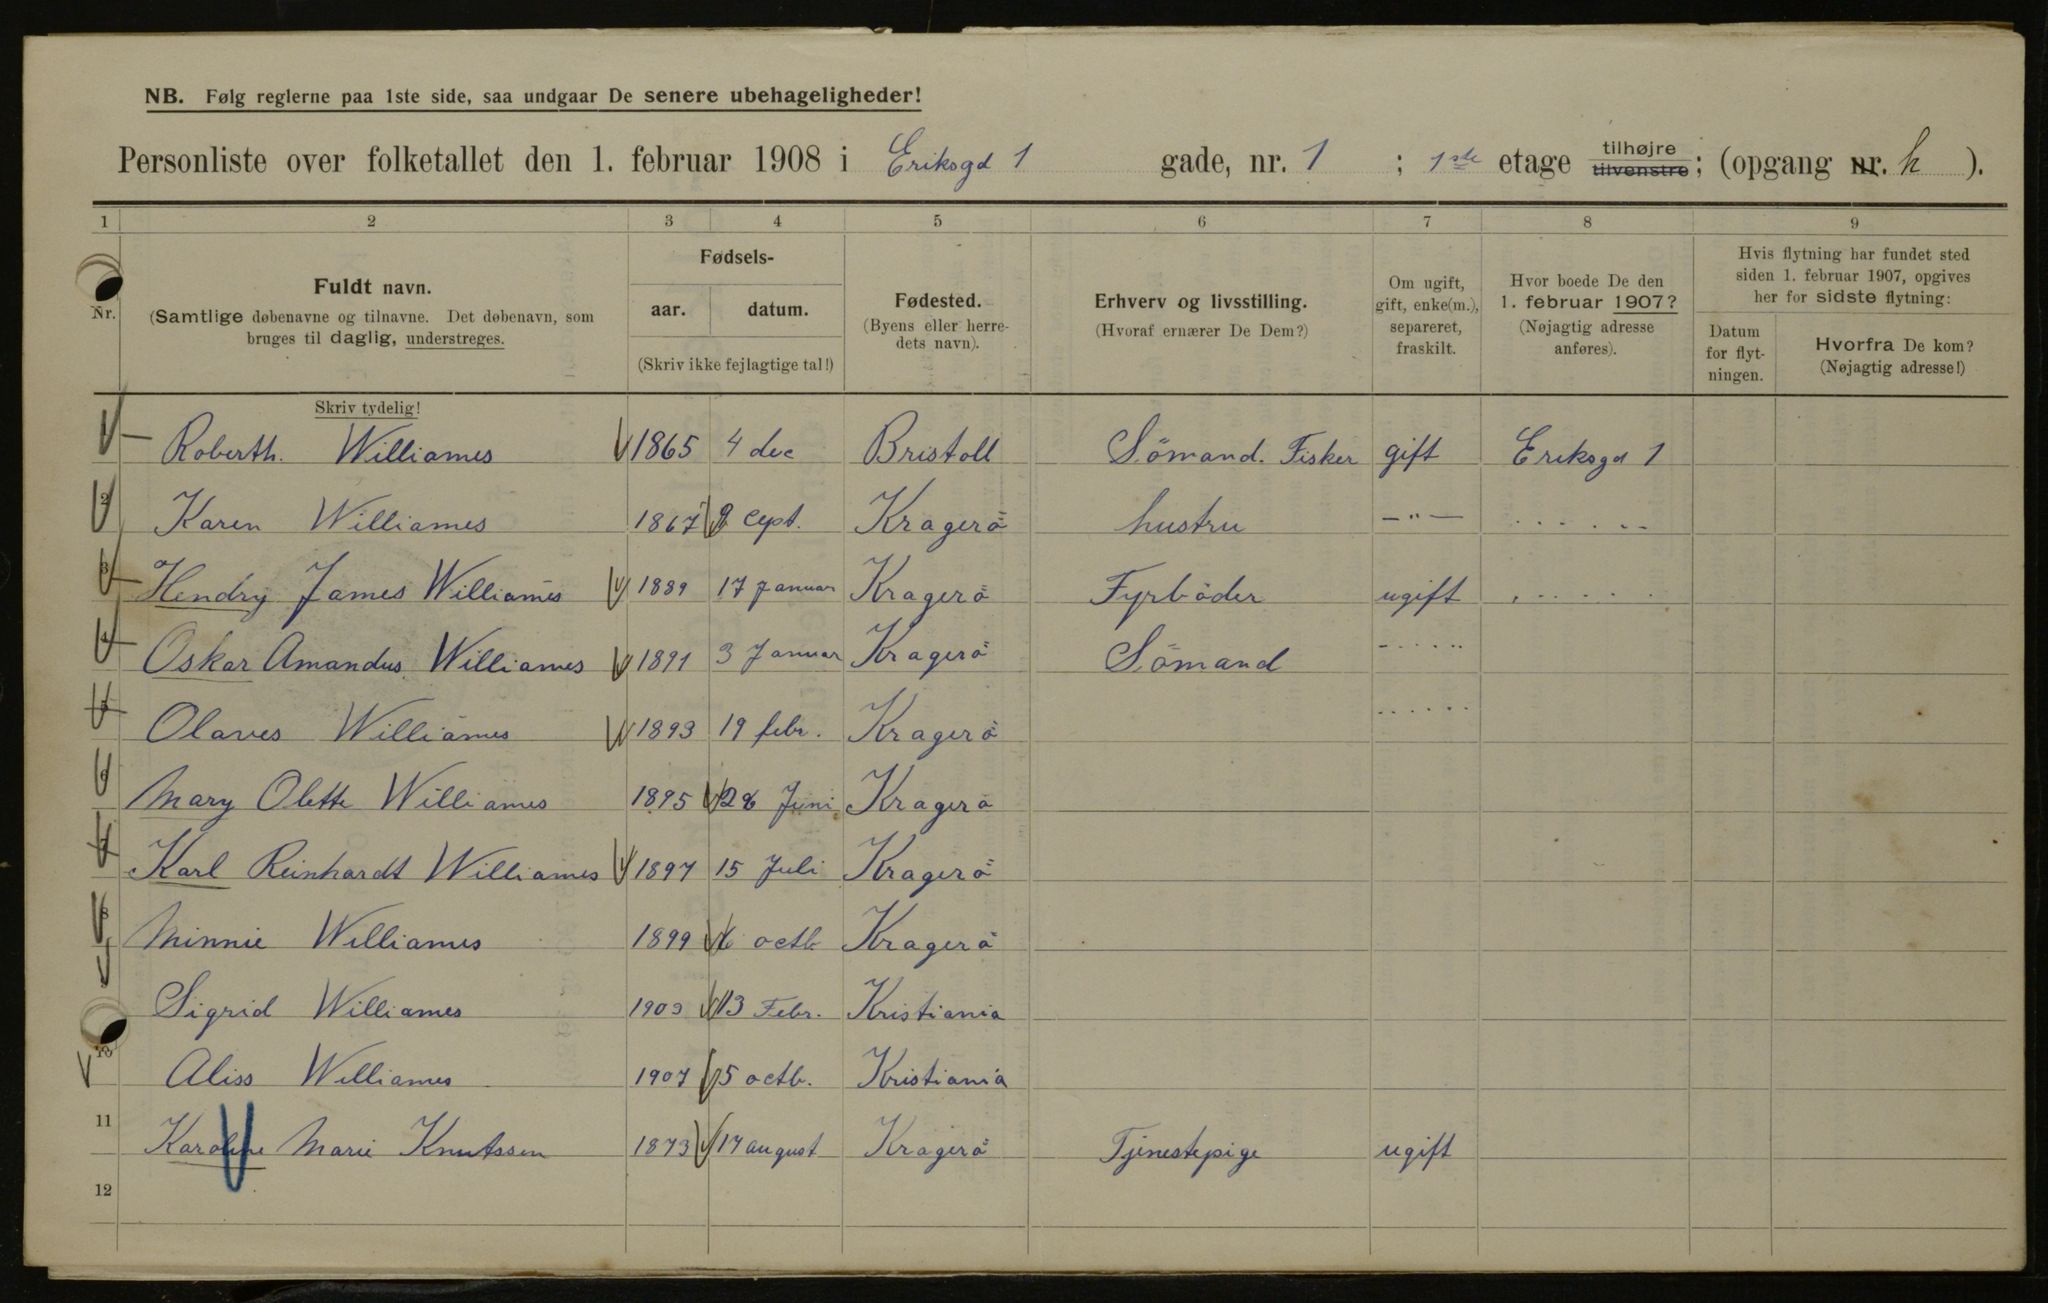 NB. Følg reglerne paa 1ste side, saa undgaar De senere ubehageligheder!
Personliste over folketallet den 1. februar 1908 i Eriksgd 1 gade, nr. 1 ; 1ste etage tilhøjre tilvenstre; (opgang nr. h ).
1 2 3 4 5 6 7 8 9
Nr.
Fuldt navn.
(Samtlige døbenavne og tilnavne. Det døbenavn, som
bruges til daglig, understreges.
Skriv tydelig!
Fødsels-
aar. datum.
(Skriv ikke fejlagtige tal!)
Fødested.
(Byens eller herre-
dets navn).
Erhverv og livsstilling.
(Hvoraf ernærer De Dem?)
Om ugift,
gift, enke(m.),
separeret,
fraskilt.
Hvor boede De den
1. februar 1907?
(Nøjagtig adresse
anføres).
Hvis flytning har fundet sted
siden 1. februar 1907, opgives
her for sidste flytning:
Datum
for flyt-
ningen.
Hvorfra De kom?
(Nøjagtig adresse!)
Roberth. Williames 1865 4 dec Bristoll Sömand. Fisker gift Eriksgd 1
2 Karen Williames 1867 Cept. Kragerö hustru —"—
3 Hendry James Williames 1889 17 Januar Kragerö Fyrböder ugift
4 Oskar Amandus Williames 1891 3 Januar Kragerö Sömand
5 Olaves Williames 1893 19 febr. Kragerö
6 Mary Olette Williames 1895 28 Juni Kragerö
7 Karl Reinhardt Williames 1897 15 Juli Kragerö
8 Minnie Williames 1899 6 octb Kragerö
Sigrid Williames 1903 13 Febr. Kristiania
10 Aliss Williames 1907 5 octb. Kristiania
11 Karoline Marie Knutssen 1873 17 august Kragerö Tjenestepige ugift
12